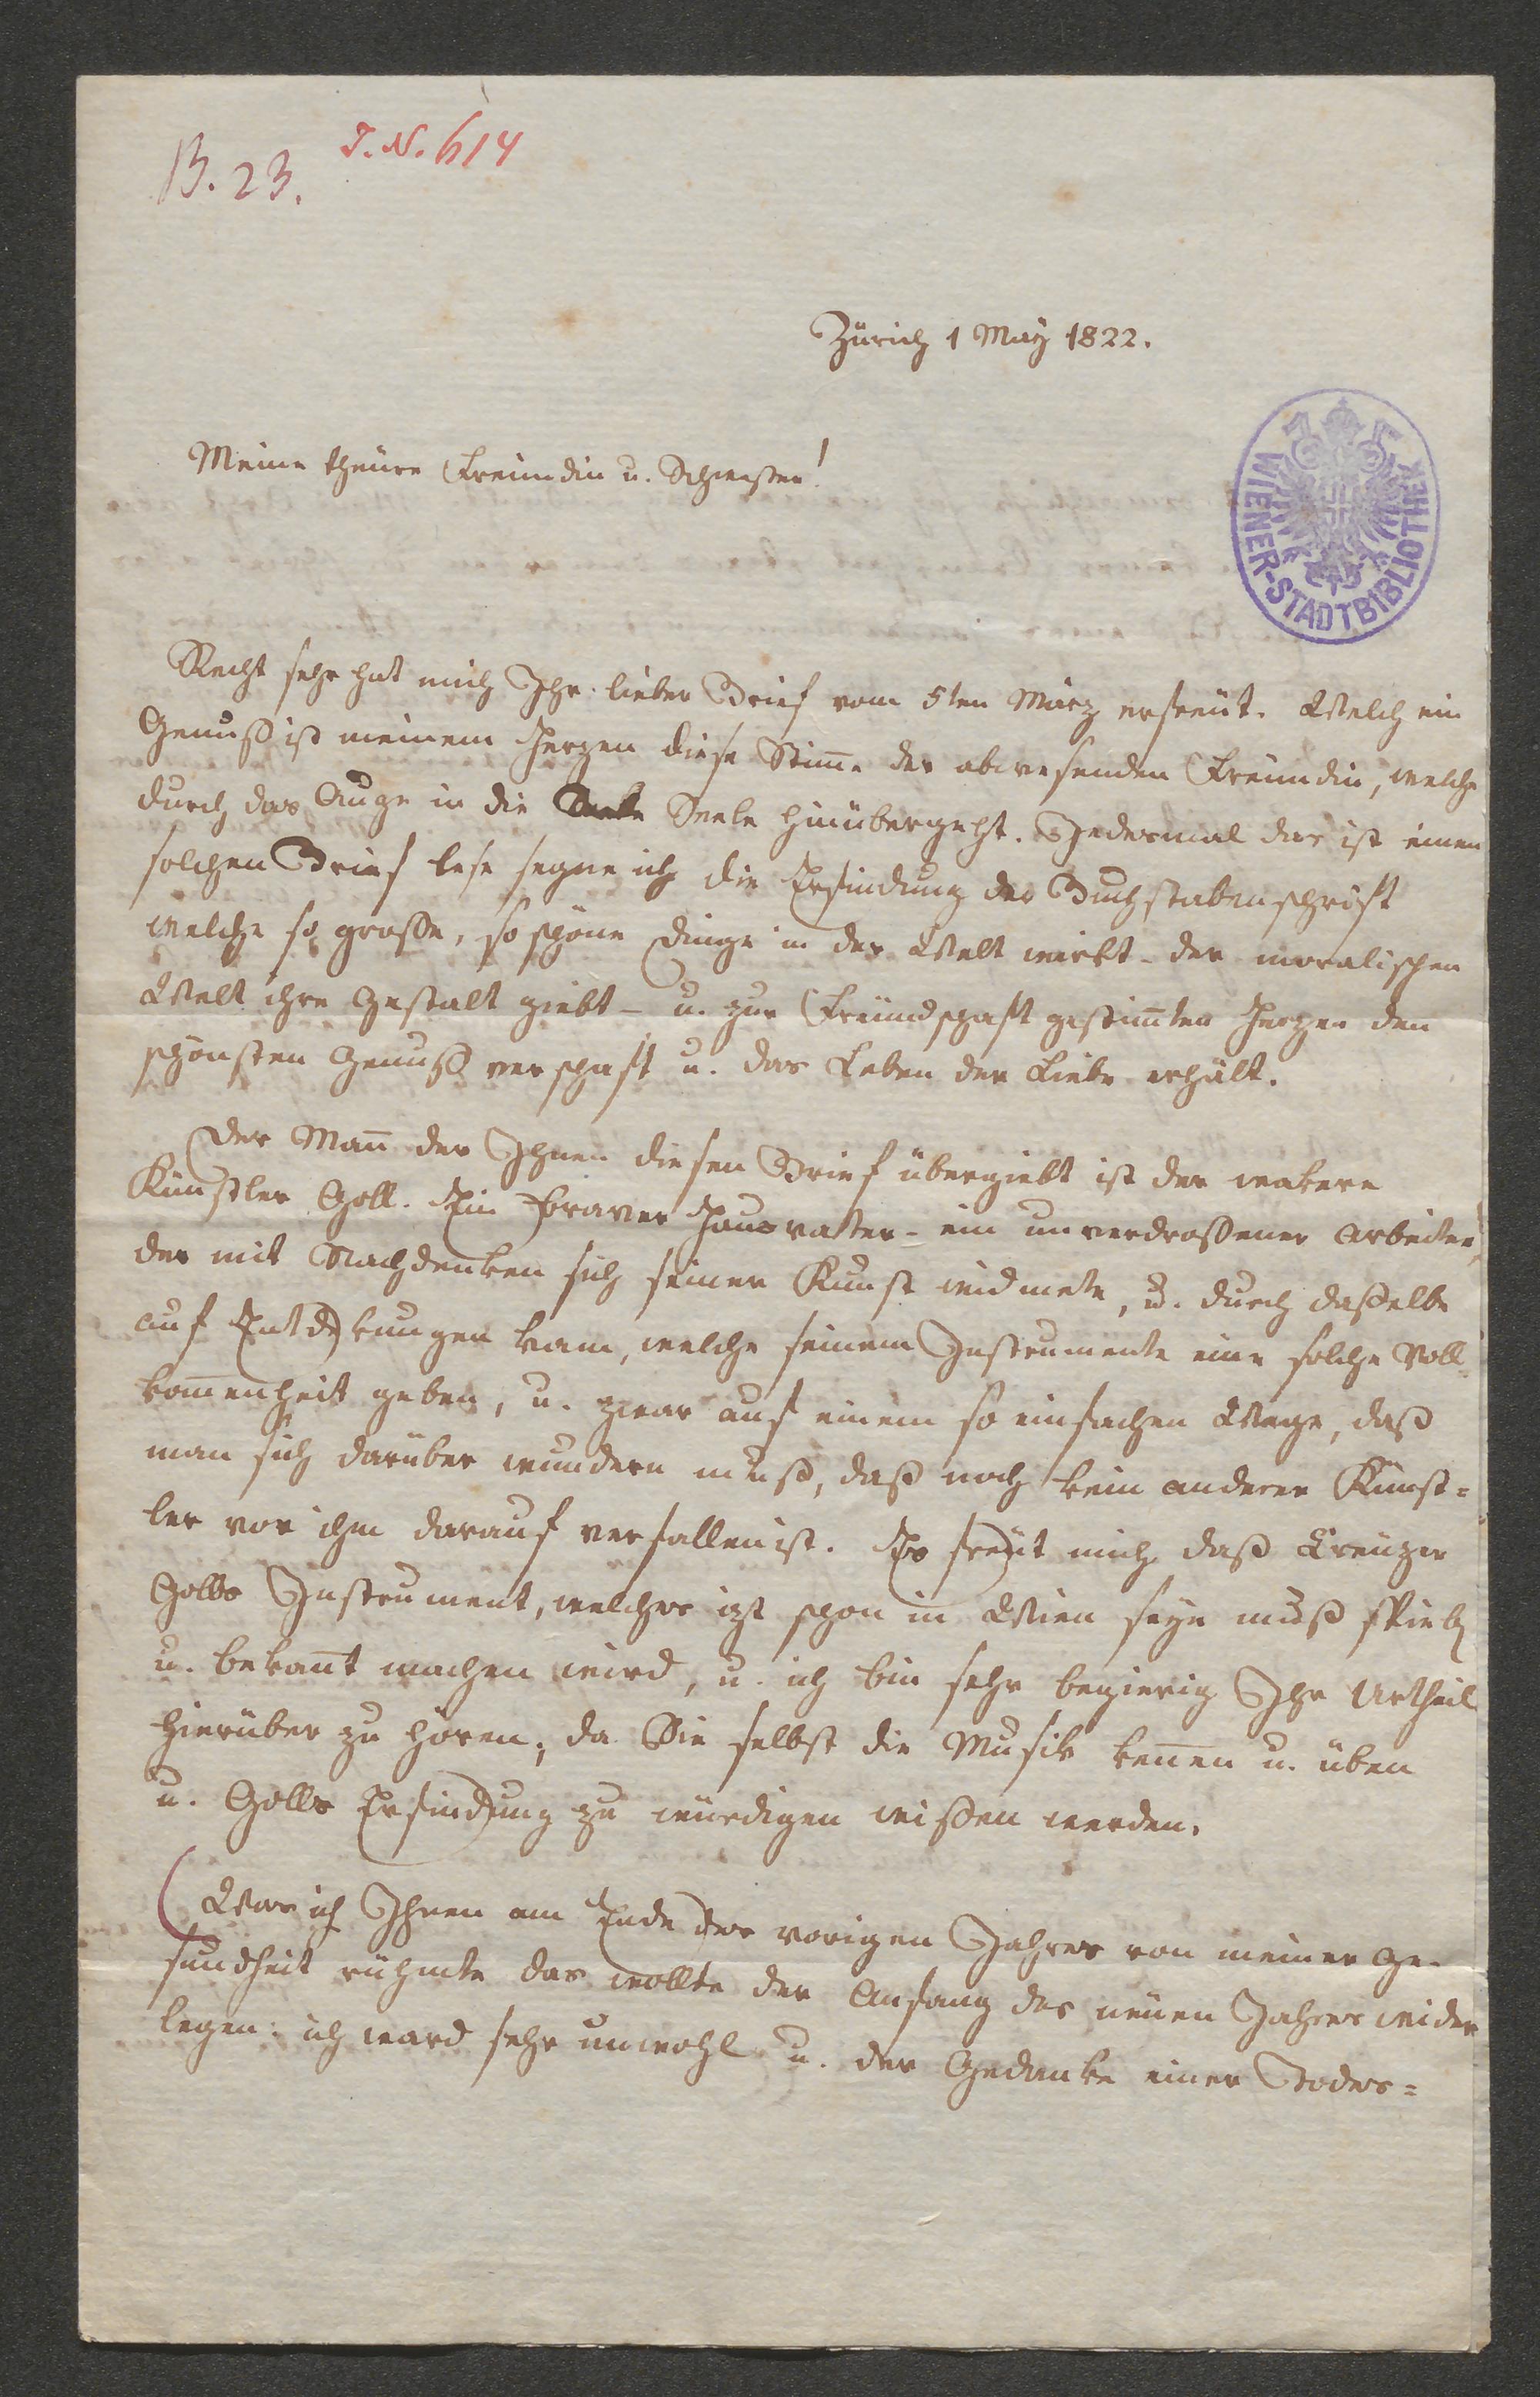 B. 23.
J. N. 614
Zürich 1 May 1822.
Meine theüre Freündin u. Schwester!
WIENER-STADTBIBLIOTHEK
Recht sehr hat mich Ihr lieber Brief vom 5ten März erfreüt. Welch ein
Genuß ist meinem Herzen diese Stim̄e der abwesenden Freündin, welche
durch das Auge in die Seele hinübergeht. Jedesmal das ist einen
solchen Brief lese segne ich die Erfindung der Buchstabenschrift
welche so große, so schöne Dinge in der Welt wirkt - der moralischen
Welt ihre Gestalt giebt - u. zur Freündschaft gestim̄ten Herzen den
schönsten Genuß verschaft u. das Leben der Liebe erhält.
Der Man̄ der Ihnen diesen Brief übergiebt ist der wakere
Künstler Goll. Ein braver Hausvatter - ein unverdroßener Arbeiter,
der mit Nachdenken sich seiner Kunst widmete, u. durch daßelbe
auf Entdekungen kam, welche seinem Instrumente eine solche Voll-
kom̄enheit geben, u. zwar auf einem so einfachen Wege, daß
man sich darüber wundern muß, daß noch kein anderer Künst=
ler vor ihm darauf verfallen ist. Es freüt mich daß Creüzer
Golls Instrument, welches izt schon in Wien seyn muß spielen
u. bekan̄t machen wird, u. ich bin sehr begierig Ihr Urtheil
hierüber zu hören, da Sie selbst die Musik ken̄en u. üben
u. Golls Erfindung zu würdigen wißen werden.
Was ich Ihnen am Ende des vorigen Jahres von meiner Ge-
sundheit rühmte das wollte der Anfang des neüen Jahres wider
legen: ich ward sehr unwohl u. der Gedanke einer Todes=